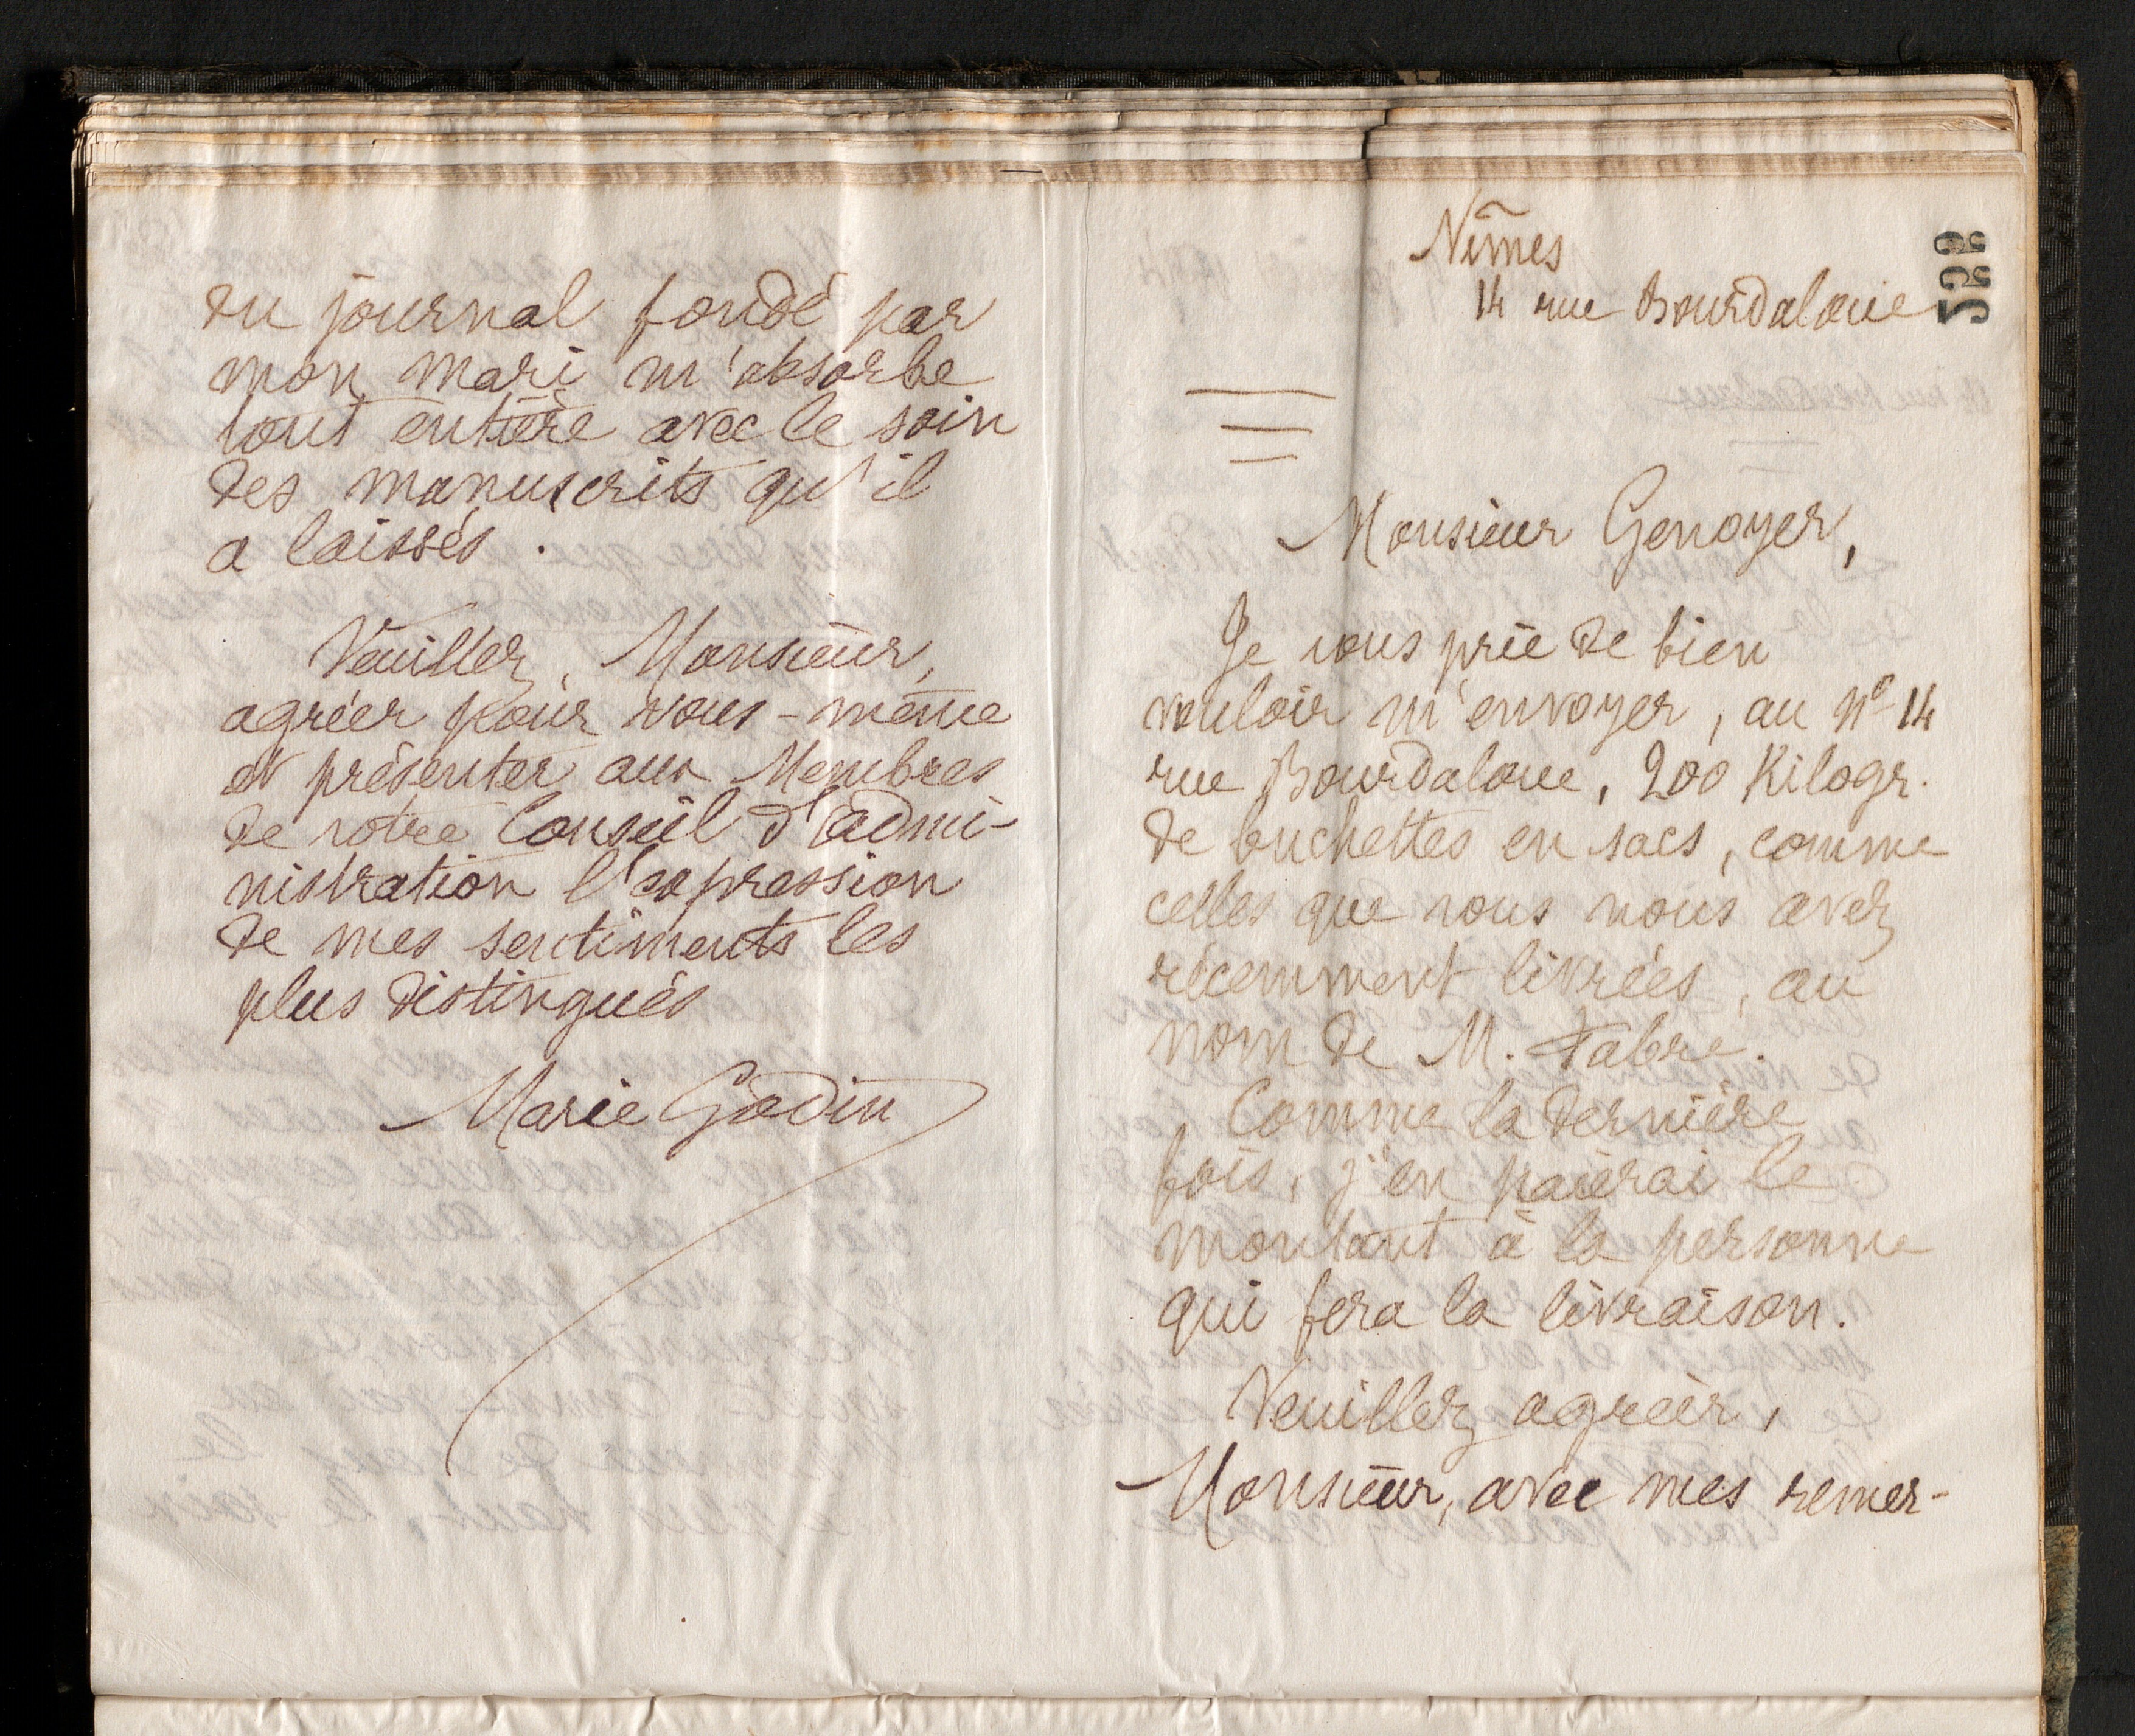 du journal fondé par
mon mari m'absorbe
tout entière avec le soin
des manuscrits qu'il
a laissés.
Veuillez, Monsieur,
agréer pour vous-même
et présenter aux Membres
de votre Conseil d'admi-
nistration l'expression
de mes sentiments les
plus distingués
Marie Godin
522
Nîmes
14 rue Bourdaloue
Monsieur Genoyer,
Je vous prie de bien
vouloir m'envoyer, au Nº 14
rue Bourdaloue, 200 Kilogr.
de buchettes en sacs, comme
celles que vous nous avez
récemment livrées, au
nom de M. Fabre.
Comme la dernière
fois, j'en paierai le
montant à la personne
qui fera la livraison.
Veuillez agréer,
Monsieur, avec mes remer-